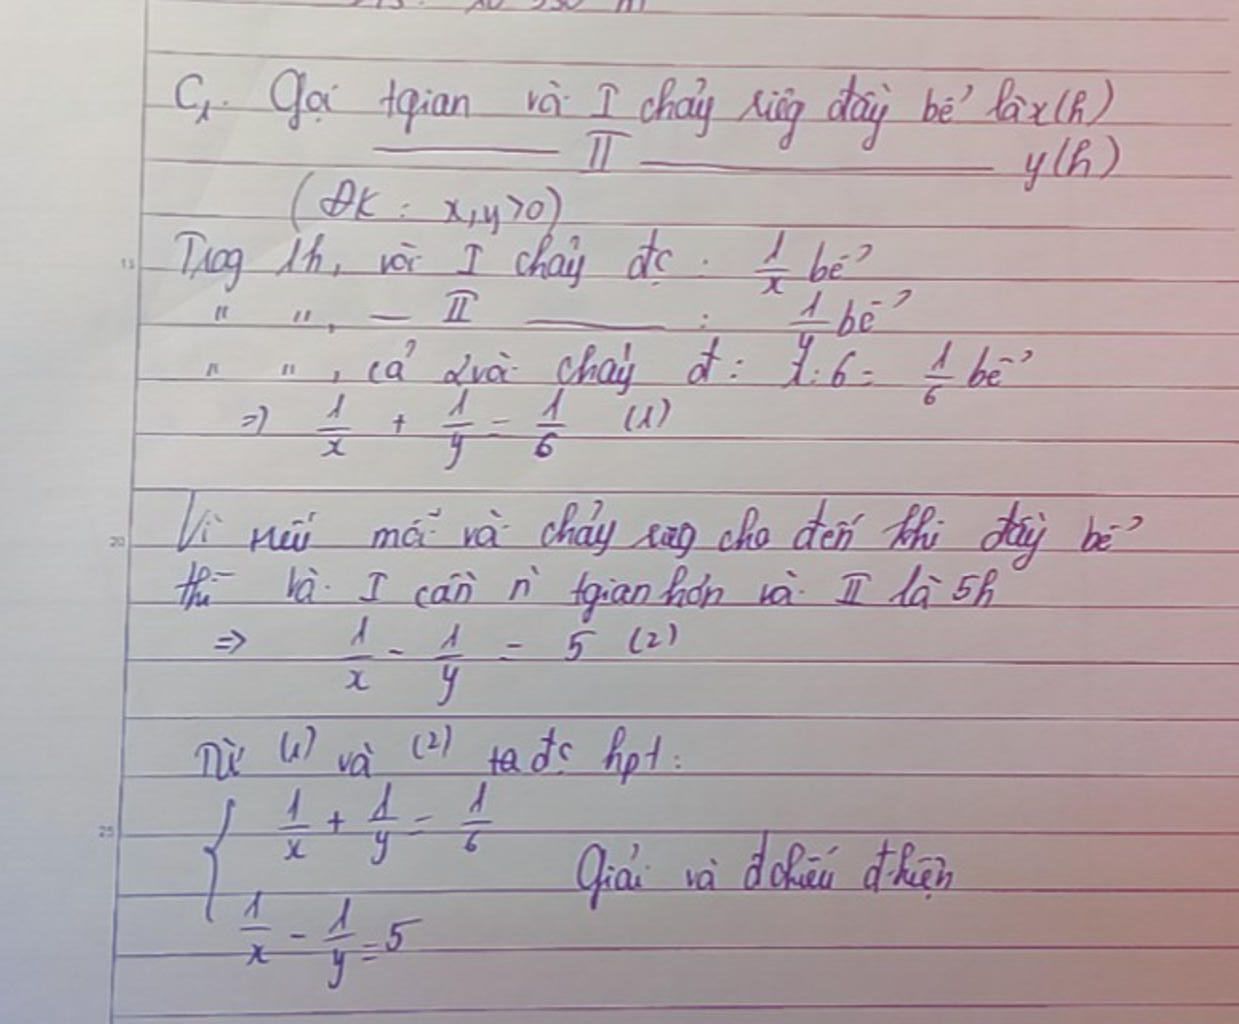 C₁. Gọi tgian vòi I chảy riêg đầy bể là x(h)
——— II ——— y(h)
(ĐK: x, y > 0)
Trog 1h, vòi I chảy đc: 1/x bể
" ", — II ———: 1/y bể
" ", cả 2 vòi chảy đ: 1:6 = 1/6 bể
=> 1/x + 1/y = 1/6 (1)
Vì nếu mỗi vòi chảy riêg cho đến khi đầy bể
thì vòi I cần n` tgian hơn vòi II là 5h
=> 1/x - 1/y = 5 (2)
Từ (1) và (2) ta đc hpt:
1/x + 1/y = 1/6
Giải và đchiếu đkiện
1/x - 1/y = 5